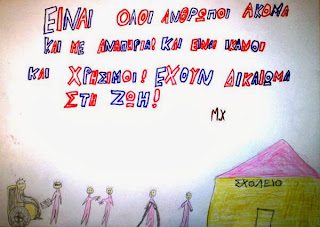 ΕΙΝΑΙ ΟΛΟΙ ΑΝΘΡΩΠΟΙ ΑΚΟΜΑ
ΚΑΙ ΜΕ ΑΝΑΠΗΡΙΑ! ΚΑΙ ΕΙΝΑΙ ΙΚΑΝΟΙ
ΚΑΙ ΧΡΗΣΙΜΟΙ! ΕΧΟΥΝ ΔΙΚΑΙΩΜΑ
ΣΤΗ ΖΩΗ!
Μ.Χ
ΣΧΟΛΕΙΟ